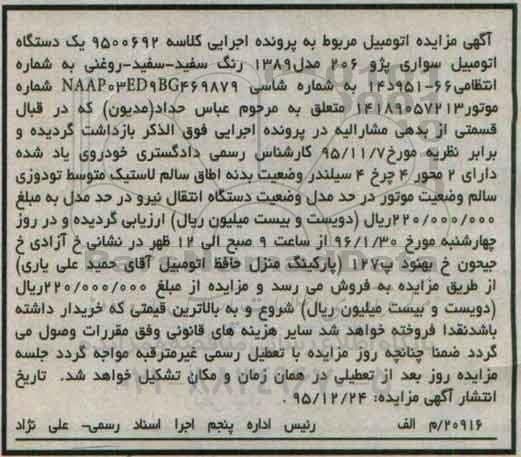 آگهی مزایده اتومبیل مربوط به پرونده اجرایی کلاسه ۹۵۰۰۶۹۲ یک دستگاه
اتومبیل سواری پژو ۲۰۶ مدل۱۳۸۹ رنگ سفید-سفید-روغنی به شماره
انتظامی۶۶-۹۵۱د۱۴ به شماره شاسی NAAP۰۳ED۹BG۴۶۹۸۷۹ شماره
موتور۱۴۱۸۹۰۵۷۲۱۳ متعلق به مرحوم عباس حداد(مدیون) که در قبال
قسمتی از بدهی مشارالیه در پرونده اجرایی فوق الذکر بازداشت گردیده و
برابر نظریه مورخ۹۵/۱۱/۷ کارشناس رسمی دادگستری خودروی یاد شده
دارای ۲ محور ۴ چرخ ۴ سیلندر وضعیت بدنه اطاق سالم لاستیک متوسط تودوزی
سالم وضعیت موتور در حد مدل وضعیت دستگاه انتقال نیرو در حد مدل به مبلغ
۲۲۰/۰۰۰/۰۰۰ریال (دویست و بیست میلیون ریال) ارزیابی گردیده و در روز
چهارشنبه مورخ ۹۶/۱/۳۰ از ساعت ۹ صبح الی ۱۲ ظهر در نشانی خ آزادی خ
جیحون خ بهنود پ۱۲۷ (پارکینگ منزل حافظ اتومبیل آقای حمید علی یاری)
از طریق مزایده به فروش می رسد و مزایده از مبلغ ۲۲۰/۰۰۰/۰۰۰ریال
(دویست و بیست میلیون ریال) شروع و به بالاترین قیمتی که خریدار داشته
باشدنقدا فروخته خواهد شد سایر هزینه های قانونی وفق مقررات وصول می
گردد ضمنا چنانچه روز مزایده با تعطیل رسمی غیرمترقبه مواجه گردد جلسه
مزایده روز بعد از تعطیلی در همان زمان و مکان تشکیل خواهد شد. تاریخ
انتشار آگهی مزایده: ۹۵/۱۲/۲۴ .
۲۰۹۱۶/م الف رئیس اداره پنجم اجرا اسناد رسمی- علی نژاد